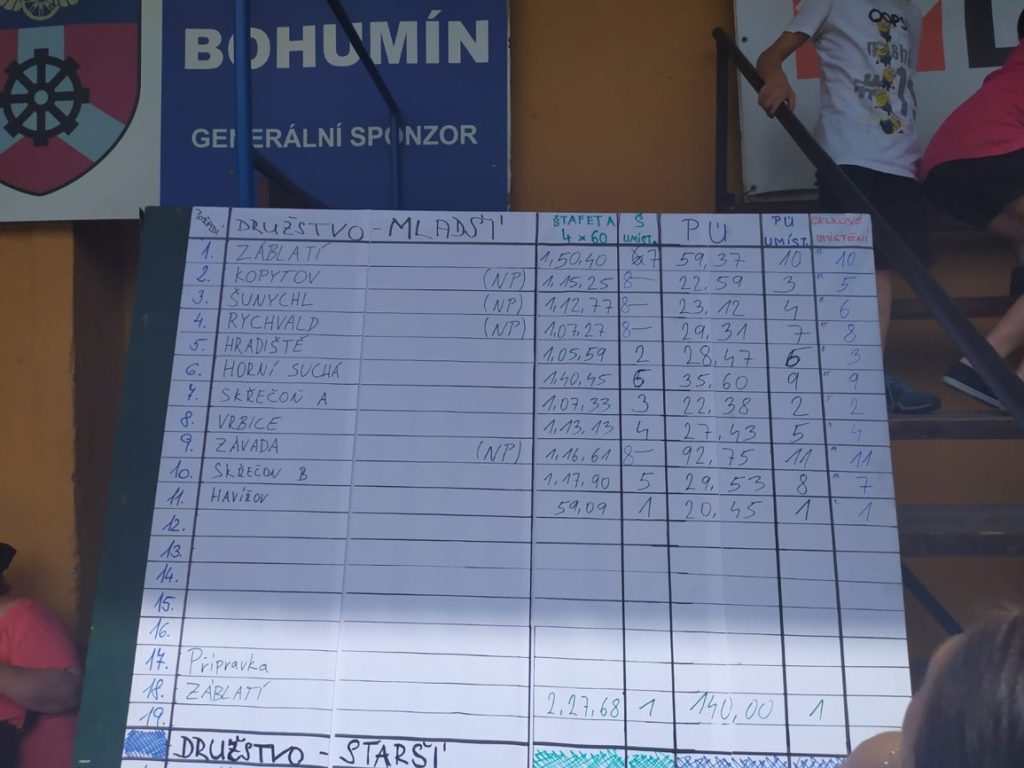 BOHUMÍN
GENERÁLNÍ SPONZOR
OOPS!
DRUŽSTVO - MLADŠÍ ŠTAFETA 4 x 60 Š UMÍST. PÚ PÚ UMÍST. CELKOVÉ
1. ZÁBLATÍ 1,50,40 7 59,37 10 10
2. KOPYTOV (NP) 1.15,25 8- 22,59 3 5
3. ŠUNYCHL (NP) 1,12,77 8- 23,12 4 6
4. RYCHVALD (NP) 1,07,27 8- 29,31 7 8
5. HRADIŠTĚ 1,05,59 2 28,47 6 3
6. HORNÍ SUCHÁ 1,40,45 6 35,60 9 9
7. SKŘEČOŇ A 1,07,33 3 22,38 2 2
8. VRBICE 1,13,13 4 27,43 5 4
9. ZÁVADA (NP) 1,16,61 8- 92,75 11 11
10. SKŘEČOŇ B 1,17,90 5 29,53 8 7
11. HAVÍŘOV 59,09 1 20,45 1 1
12.
13.
14.
15.
16.
17. Přípravka
18. ZÁBLATÍ 2,27,68 1 140,00 1
19.
DRUŽSTVO - STARŠÍ